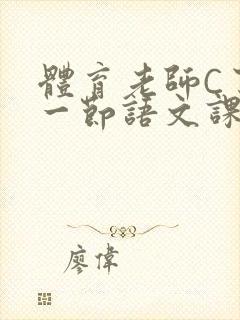 體育老師C
一節語文課
廖偉